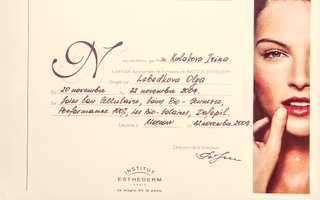 Nous certifions que Mme Kulakova Irina
a participé aux journées de formation de INSTITUT ESTHEDERM
Dirigée par Lebedkova Olga
Du 20 novembre Au 22 novembre 2004.
Sur Soins Eau Cellulaire, Soins Bio - Jeunesse,
Performance 100%, Les Bio-Solaires, Defepil.
Décerné à Moscou le 22 novembre 2004.
Direction de la formation
INSTITUT
ESTHEDERM
PARIS
la magie de la peau